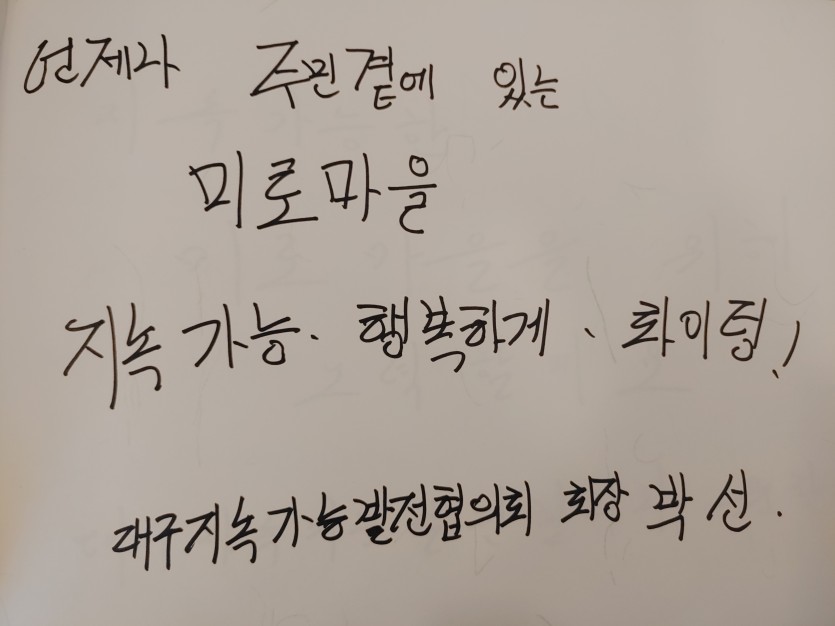 언제나 주민곁에 있는
미로마을
지속가능. 행복하게、화이팅!
대구지속가능발전협의회 회장 박선.